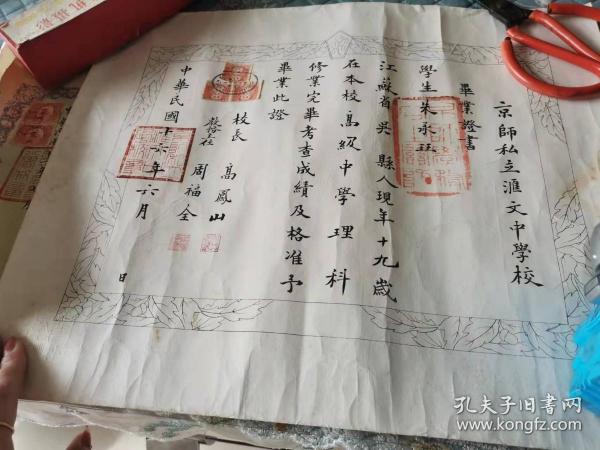 京師私立滙文中學校
畢業證書
學生朱永珏
江蘇省吳縣人現年十九歲
在本校高級中學理科
修業完畢考查成績及格准予
畢業此證
校長 高鳳山
周福全
中華民國十六年六月 日
孔夫子旧书网
www.kongfz.com